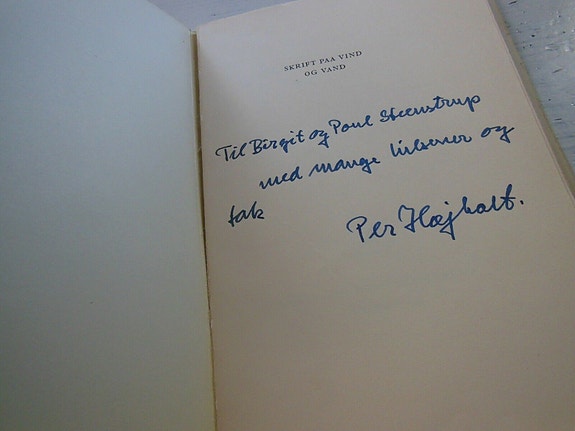 SKRIFT PAA VIND
OG VAND
Til Birgit og Poul Steenstrup
med mange hilsener og
tak
Per Højholt.